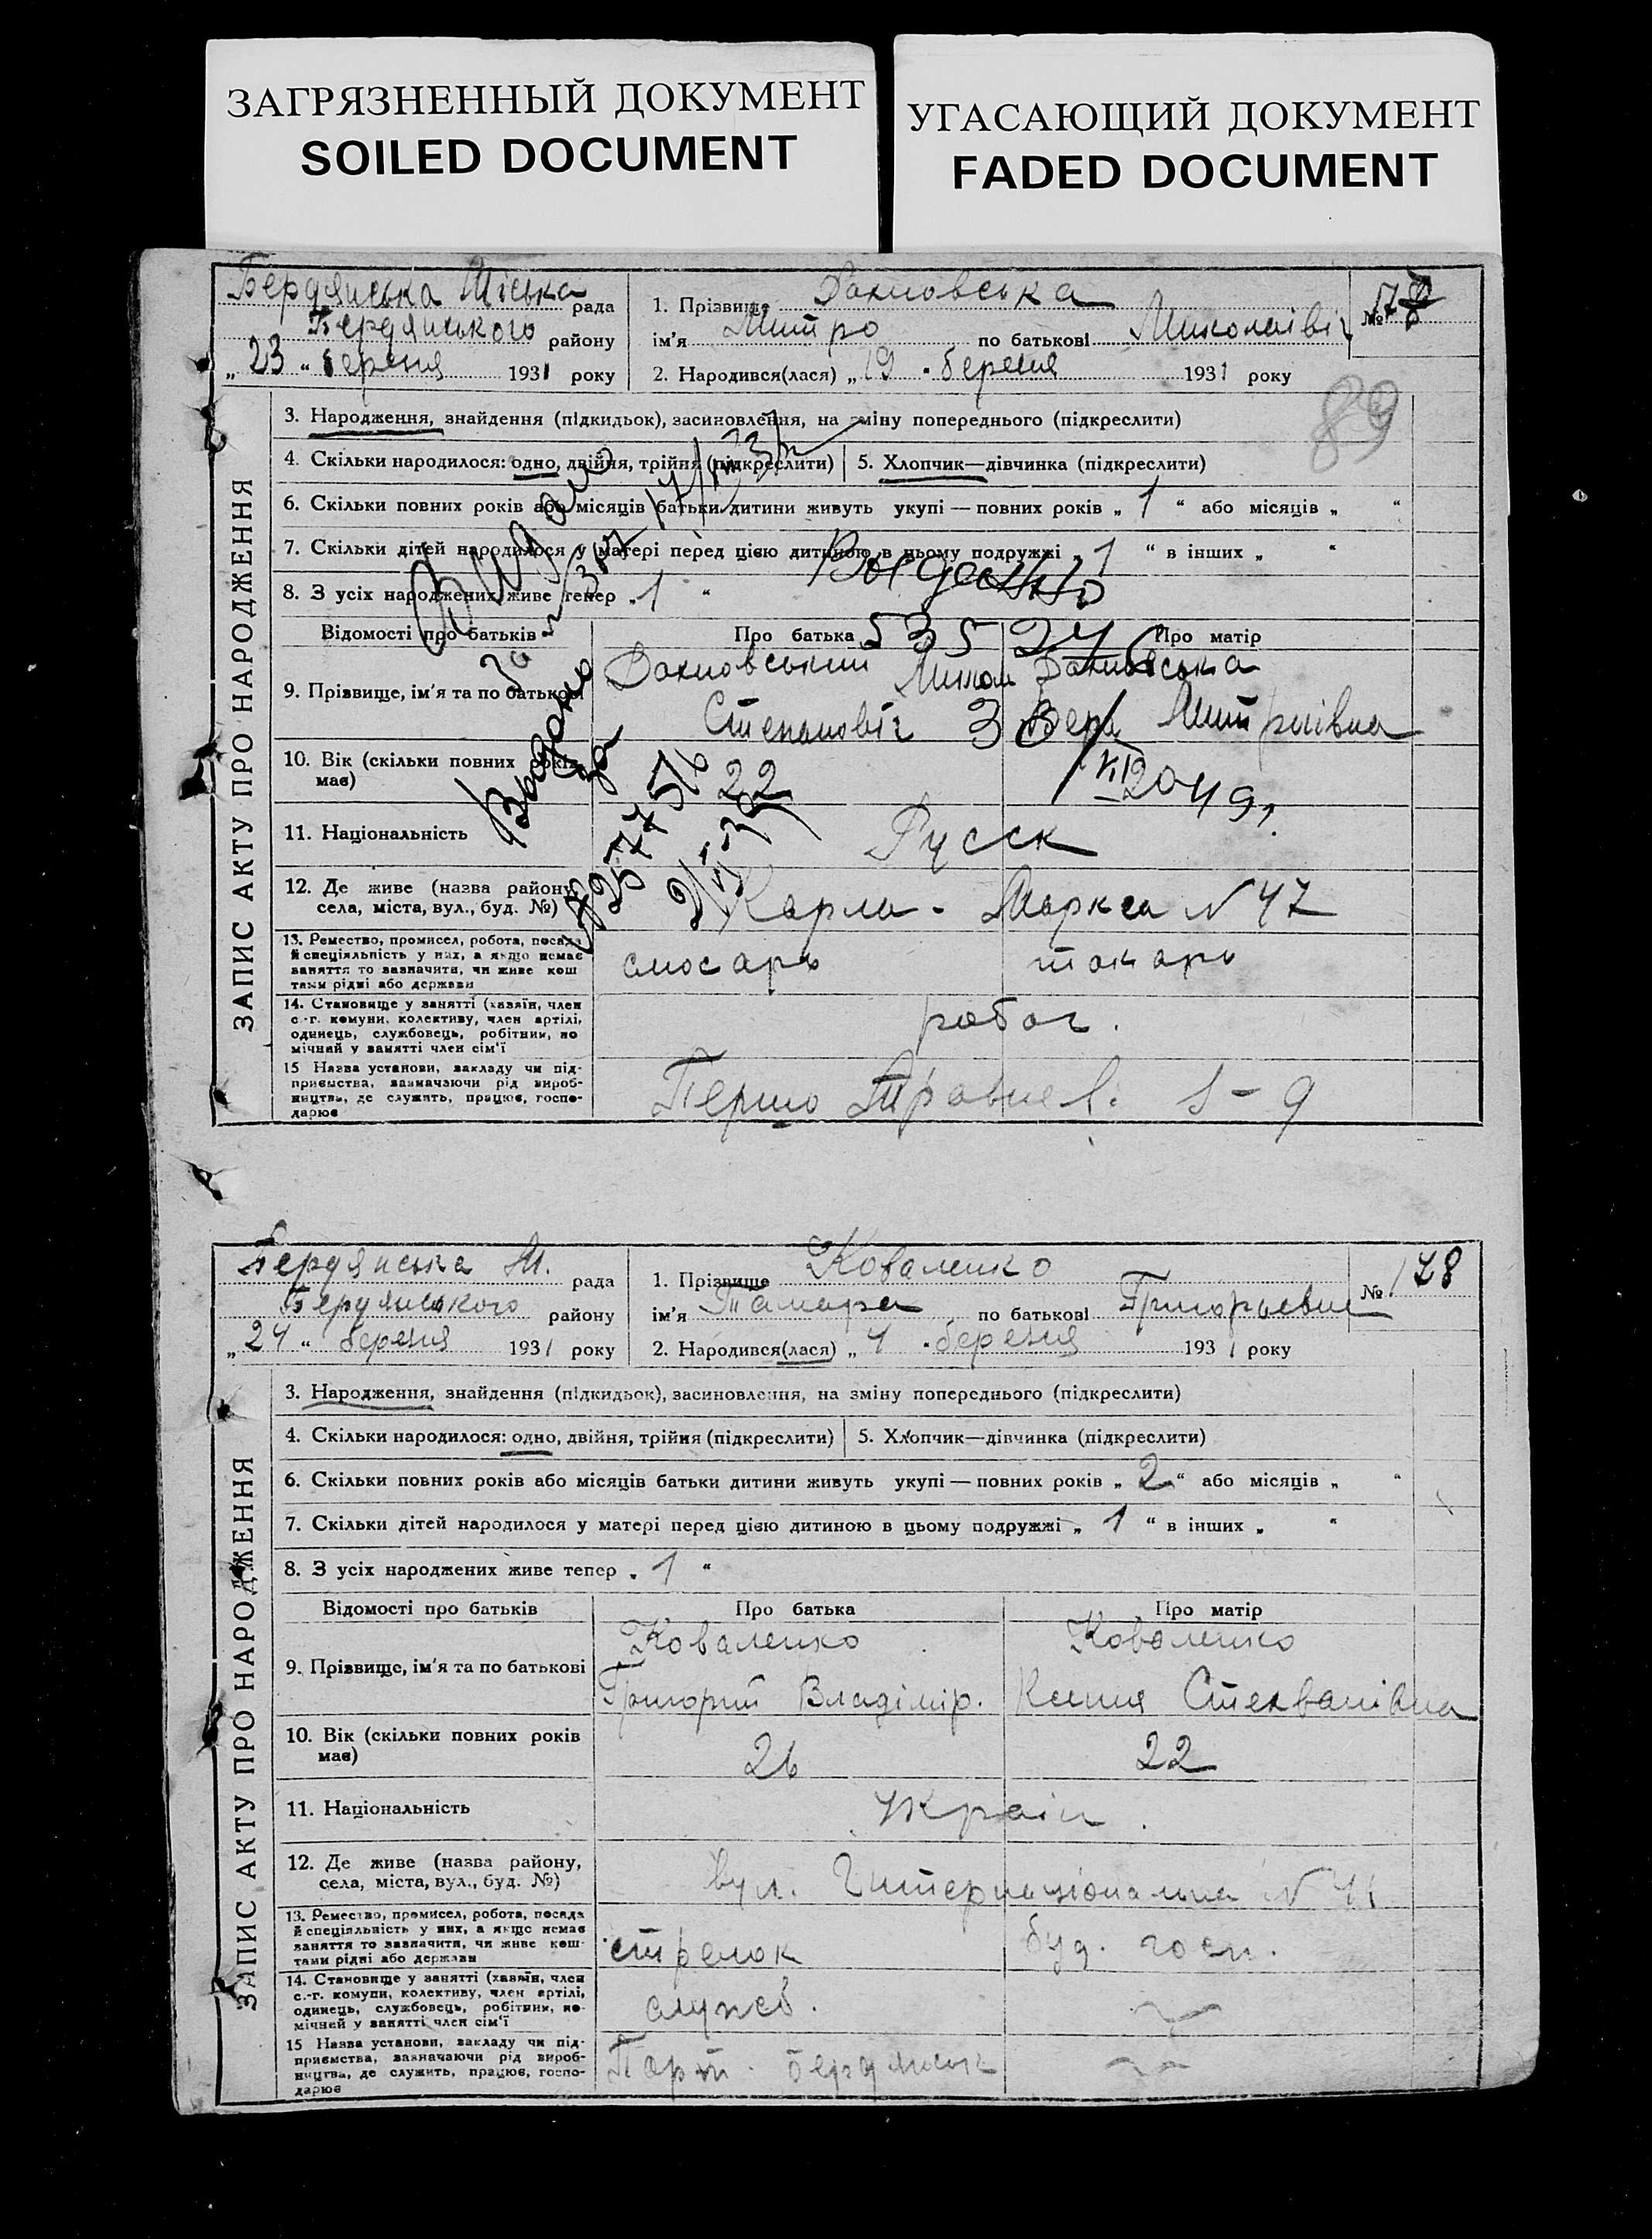 ЗАГРЯЗНЕННЫЙ ДОКУМЕНТ
SOILED DOCUMENT
УГАСАЮЩИЙ ДОКУМЕНТ
FADED DOCUMENT
ЗАПИС АКТУ ПРО НАРОДЖЕННЯ
Бердянська Міська рада
Бердянського району
„ 23 “ березня 1931 року
1. Прізвище
ім'я Митро по батькові Миколаівіч
2. Народився(лася) „ 19 “ березня 1931 року
№ 177
89
3. Народження, знайдення (підкидьок), засиновлення, на зміну попереднього (підкреслити)
4. Скільки народилося: одно, двійня, трійня (підкреслити) 5. Хлопчик—дівчинка (підкреслити)
6. Скільки повних років або місяців батьки дитини живуть укупі — повних років „ 1 “ або місяців „ “
7. Скільки дітей народилося у матері перед цією дитиною в цьому подружжі „ 1 “ в інших „ “
8. З усіх народжених живе тепер „ 1 “
Выдано
Відомості про батьків Про батька Про матір
9. Прізвище, ім'я та по батькові
Степановіч Вера Митріівна
10. Вік (скільки повних років має) 22 20
11. Національність Русск
12. Де живе (назва району, села, міста, вул., буд. №) Карла - Маркса N 47
13. Ремество, промисел, робота, посада й спеціяльність у них, а якщо немає заняття то зазначити, чи живе коштами рідні або держави слюсарь токарь
14. Становище у занятті (хазяїн, член с.-г. комуни, колективу, член артілі, одинець, службовець, робітник, помічний у занятті член сім'ї робоч.
15 Назва установи, закладу чи підприємства, зазначаючи рід виробництва, де служить, працює, господарює Першо Травнев.
ЗАПИС АКТУ ПРО НАРОДЖЕННЯ
Бердянська М. рада
Бердянського району
„ 24 “ березня 1931 року
1. Прізвище Коваленко
ім'я Тамара по батькові Григорьевна
2. Народився(лася) „ 4 “ березня 1931 року
№ 178
3. Народження, знайдення (підкидьок), засиновлення, на зміну попереднього (підкреслити)
4. Скільки народилося: одно, двійня, трійня (підкреслити) 5. Хлопчик—дівчинка (підкреслити)
6. Скільки повних років або місяців батьки дитини живуть укупі — повних років „ 2 “ або місяців „ “
7. Скільки дітей народилося у матері перед цією дитиною в цьому подружжі „ 1 “ в інших „ “
8. З усіх народжених живе тепер „ 1 “
Відомості про батьків Про батька Про матір
Коваленко Коваленко
9. Прізвище, ім'я та по батькові
Григорий Владімір. Ксения Стекванівна
10. Вік (скільки повних років має) 26 22
11. Національність Украін.
12. Де живе (назва району, села, міста, вул., буд. №) вул. Интернаціональна N 41
13. Ремество, промисел, робота, посада й спеціяльність у них, а якщо немає заняття то зазначити, чи живе коштами рідні або держави стрелок буд. госп.
14. Становище у занятті (хазяїн, член с.-г. комуни, колективу, член артілі, одинець, службовець, робітник, помічний у занятті член сім'ї служб.
15 Назва установи, закладу чи підприємства, зазначаючи рід виробництва, де служить, працює, господарює Порт. Бердянськ